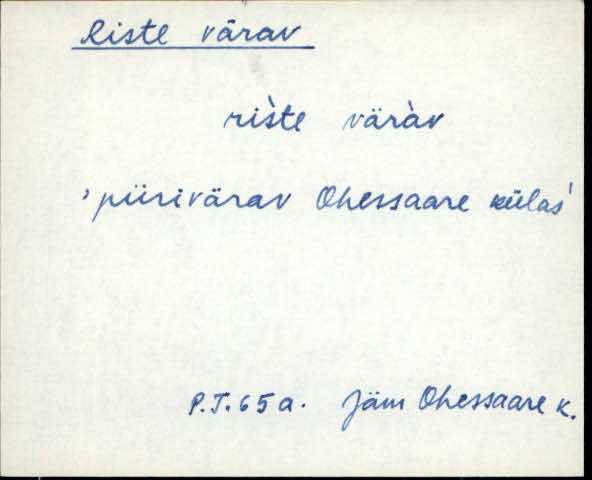 Riste värav
rìste väràv
'piirivärav Ohessaare külas'
P.T. 65 a. Jäm Ohessaare k.